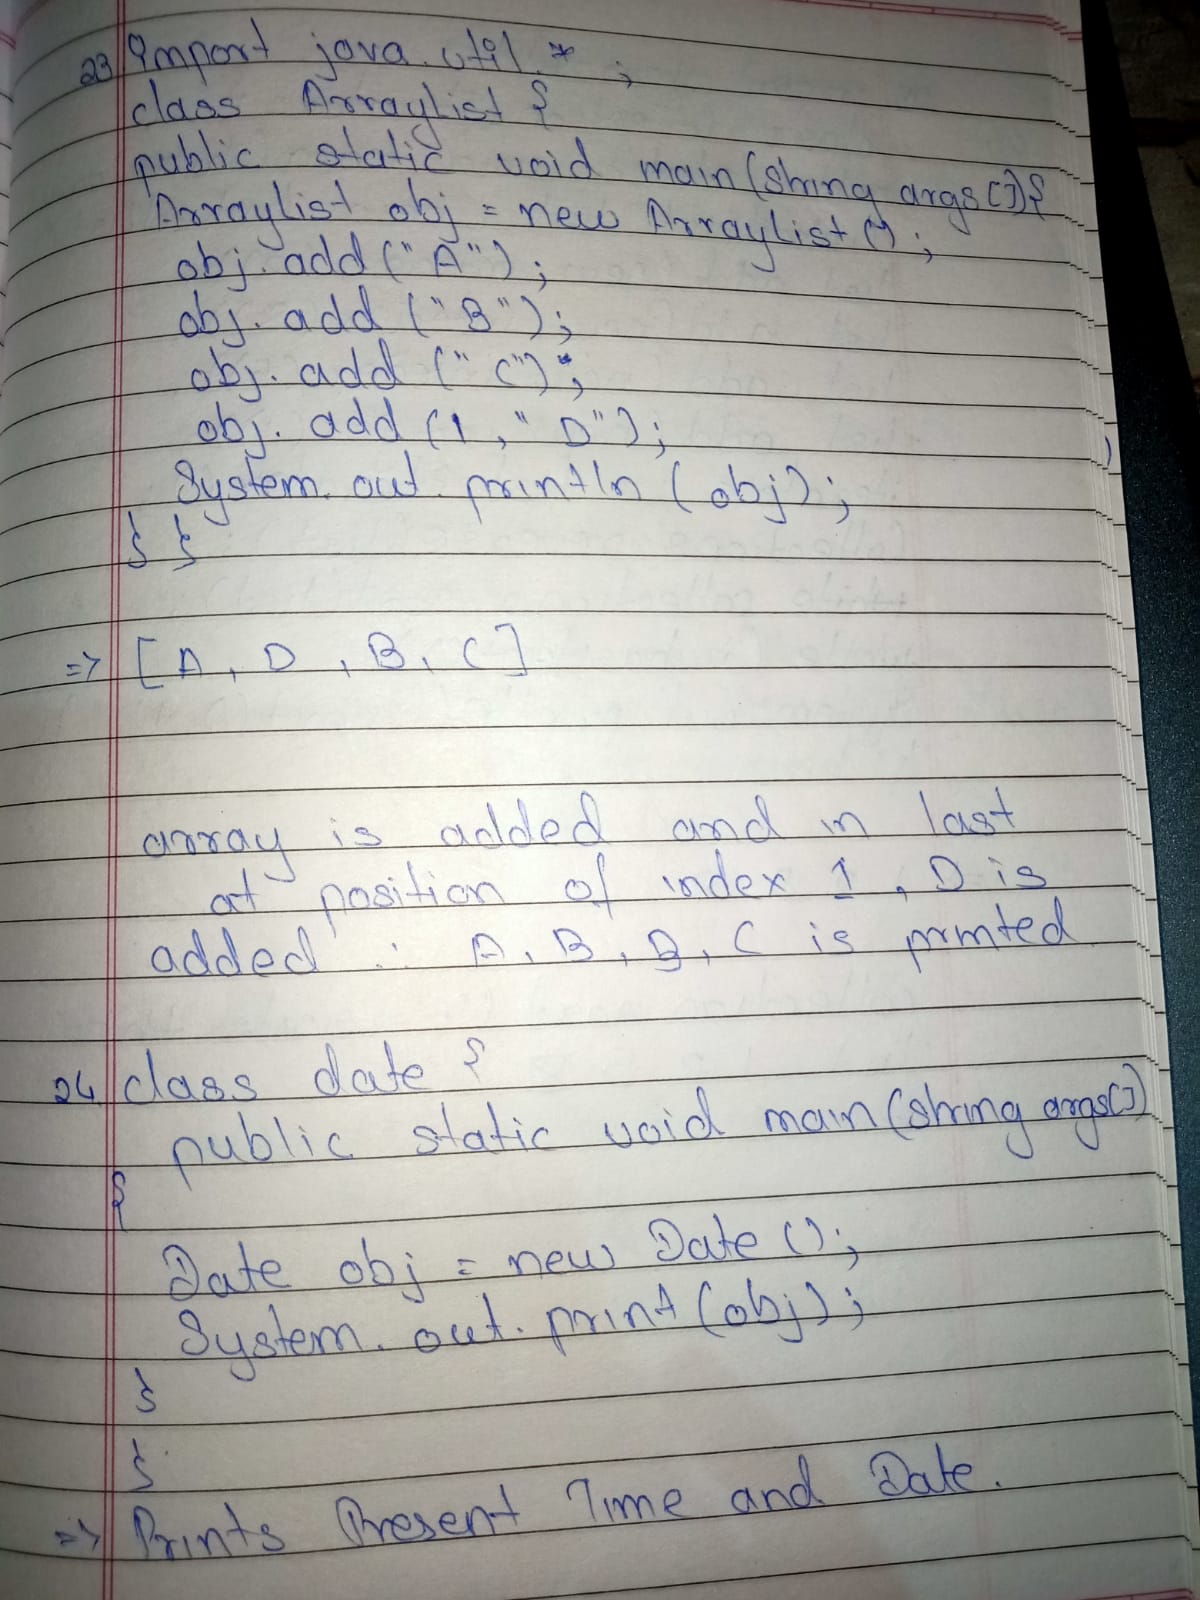 23 import java.util.*;
class Arraylist {
public static void main(string args[]){
Arraylist obj = new Arraylist();
obj.add("A");
obj.add("B");
obj.add("C");
obj.add(1,"D");
System.out.println(obj);
} }
=> [A, D, B, C]
array is added and in last
at position of index 1, D is
added ∴ A, B, B, C is printed
24. class date {
public static void main(string args[])
{
Date obj = new Date();
System.out.print(obj);
}
}
=> Prints Present Time and Date.